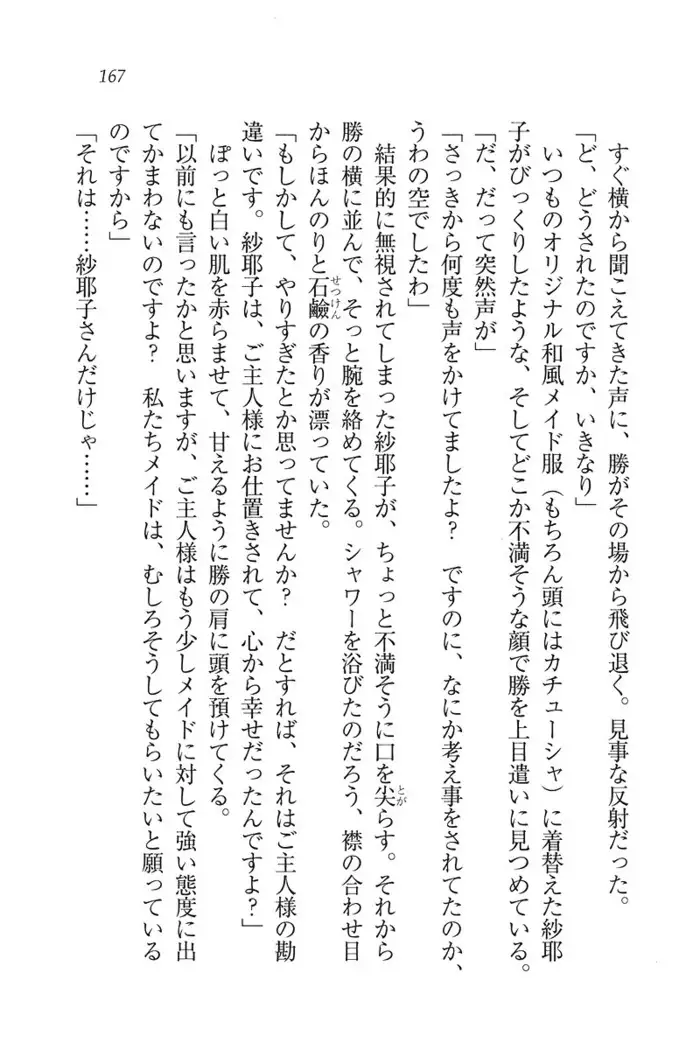 167
すぐ横から聞こえてきた声に、勝がその場から飛び退く。見事な反射だった。
「ど、どうされたのですか、いきなり」
いつものオリジナル和風メイド服（もちろん頭にはカチューシャ）に着替えた紗耶
子がびっくりしたような、そしてどこか不満そうな顔で勝を上目遣いに見つめている。
「だ、だって突然声が」
「さっきから何度も声をかけてましたよ？　ですのに、なにか考え事をされてたのか、
うわの空でしたわ」
結果的に無視されてしまった紗耶子が、ちょっと不満そうに口を尖らす。それから
勝の横に並んで、そっと腕を絡めてくる。シャワーを浴びたのだろう、襟の合わせ目
からほんのりと石鹼の香りが漂っていた。
「もしかして、やりすぎたとか思ってませんか？　だとすれば、それはご主人様の勘
違いです。紗耶子は、ご主人様にお仕置きされて、心から幸せだったんですよ？」
ぽっと白い肌を赤らませて、甘えるように勝の肩に頭を預けてくる。
「以前にも言ったかと思いますが、ご主人様はもう少しメイドに対して強い態度に出
てかまわないのですよ？　私たちメイドは、むしろそうしてもらいたいと願っている
のですから」
「それは……紗耶子さんだけじゃ……」